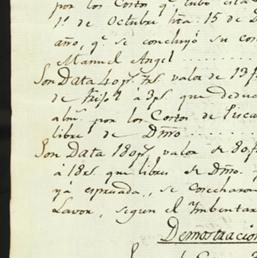 por los Cortos q.e tubo esta
1.o de Octubre hta. 15 de
año, q.e se concluyó su
Manuel Angel
Son Data 40 p.s 7 r.s valor de 13 f
de frijol à 3 p.s que
por los Cortos de
libre de Dmo.
Son Data 180 p.s valor de 80 f
à 18 r.s que libres de Dmo.
yá espresada, se cosecharon
Lavor, segun el Imbentar
Demostracion